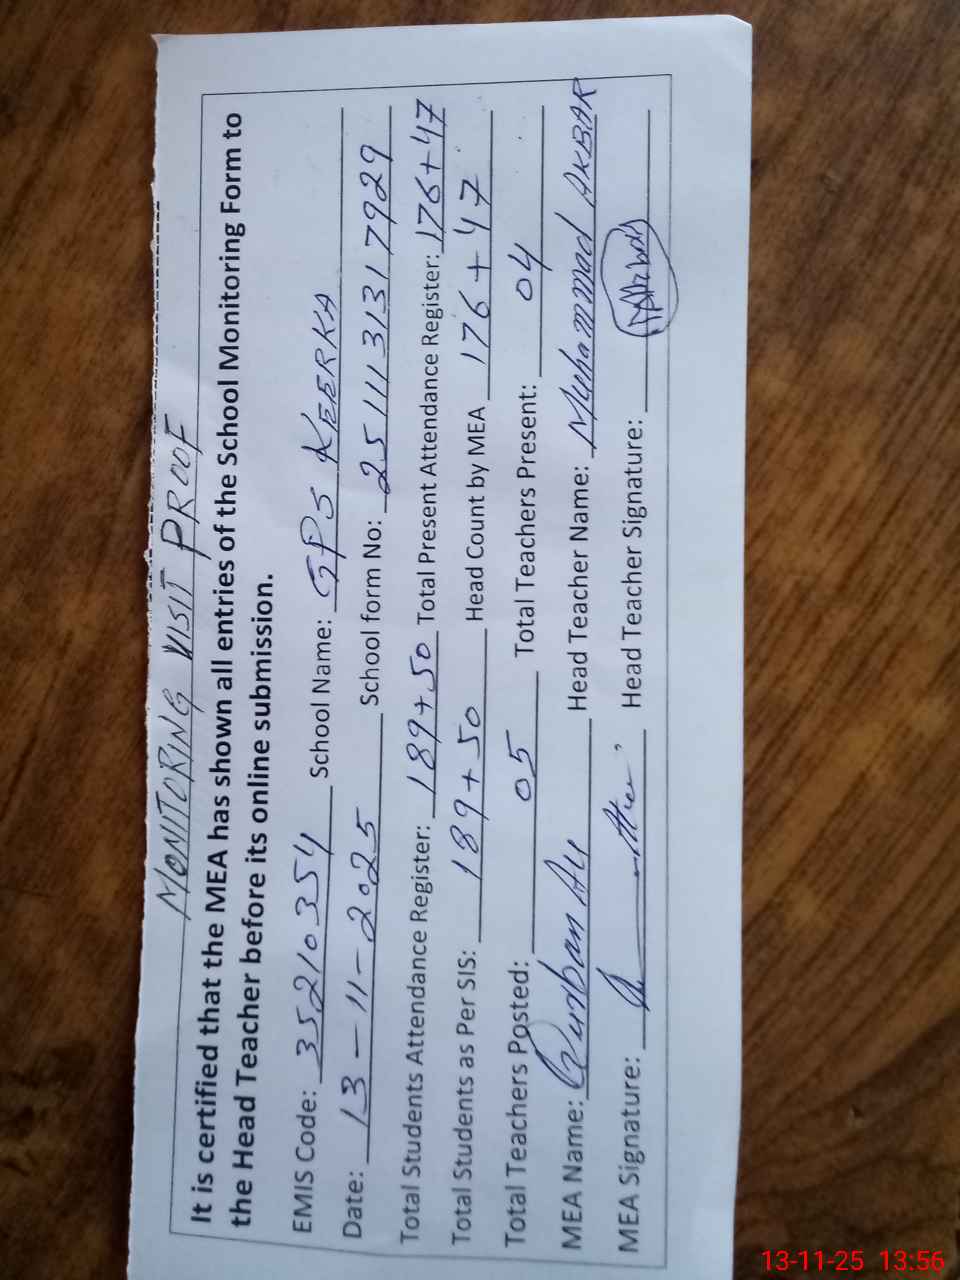 MONITORING VISIT PROOF
It is certified that the MEA has shown all entries of the School Monitoring Form to
the Head Teacher before its online submission.
EMIS Code: 35210354 School Name: GPS KEERKA
Date: 13-11-2025 School form No: 2511131317929
Total Students Attendance Register: 189+50 Total Present Attendance Register: 176+47
Total Students as Per SIS: 189+50 Head Count by MEA 176+47
Total Teachers Posted: 05 Total Teachers Present: 04
MEA Name: Qurdban Aly Head Teacher Name: Muhammad AKBAR
MEA Signature: Head Teacher Signature:
13-11-25 13:56